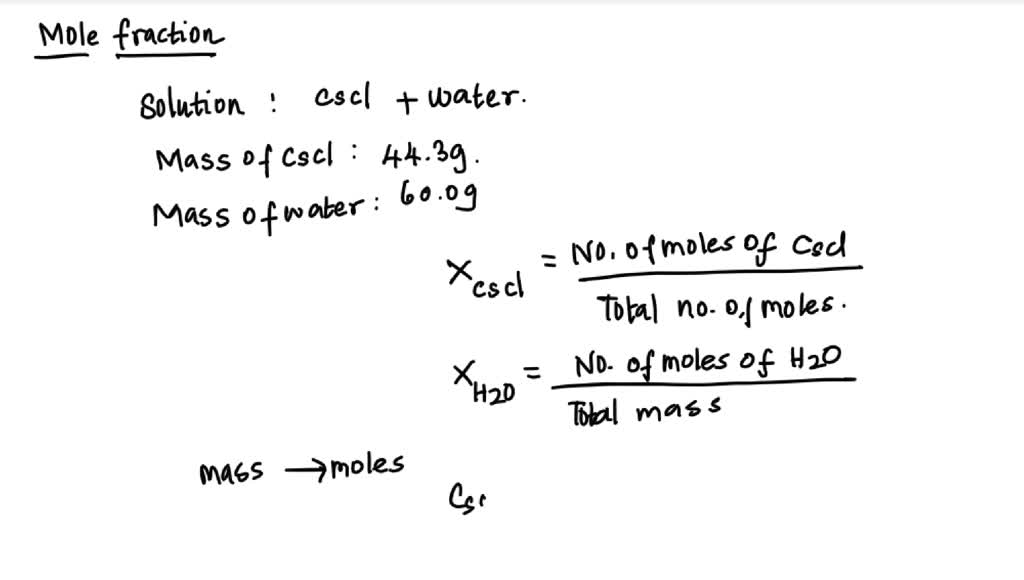 Mole fraction
Solution : CsCl + water.
Mass of CsCl : 44.3g.
Mass of water : 60.0g
X CsCl = No. of moles of CsCl
Total no. of moles.
X H2O = No. of moles of H2O
Total mass
mass → moles
Cs